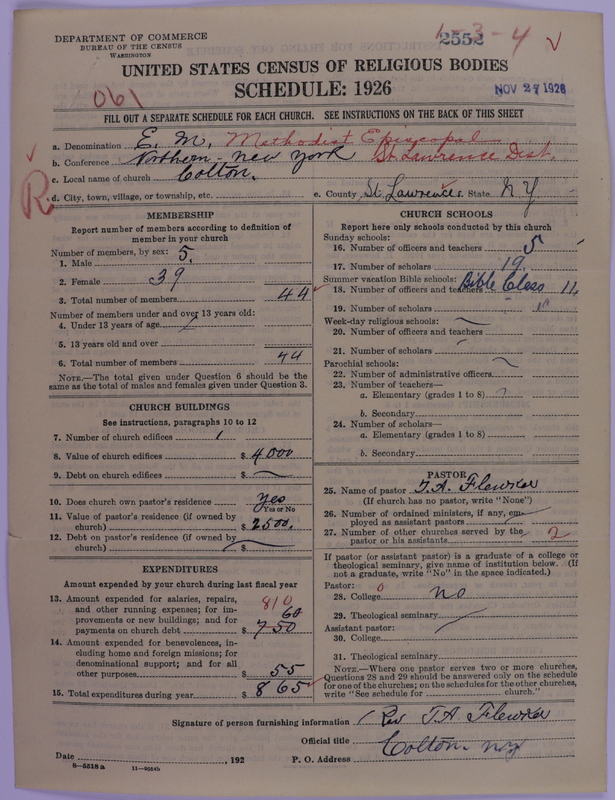 DEPARTMENT OF COMMERCE
BUREAU OF THE CENSUS
WASHINGTON
2552
1-3-4 √
UNITED STATES CENSUS OF RELIGIOUS BODIES
SCHEDULE: 1926
061
NOV 27 1926
FILL OUT A SEPARATE SCHEDULE FOR EACH CHURCH. SEE INSTRUCTIONS ON THE BACK OF THIS SHEET
a. Denomination E. M. Methodist Episcopal
b. Conference Northern-New York St. Lawrence Dist.
c. Local name of church Colton.
R
d. City, town, village, or township, etc.
e. County St Lawrence State NY
MEMBERSHIP
Report number of members according to definition of member in your church
Number of members, by sex:
1. Male 5.
2. Female 39
3. Total number of members 44
Number of members under and over 13 years old:
4. Under 13 years of age
5. 13 years old and over
6. Total number of members 44
NOTE.—The total given under Question 6 should be the same as the total of males and females given under Question 3.
CHURCH BUILDINGS
See instructions, paragraphs 10 to 12
7. Number of church edifices 1
8. Value of church edifices $ 4000
9. Debt on church edifices $ —
10. Does church own pastor's residence Yes
Yes or No
11. Value of pastor's residence (if owned by church) $ 2500.
12. Debt on pastor's residence (if owned by church) $ —
EXPENDITURES
Amount expended by your church during last fiscal year
13. Amount expended for salaries, repairs, and other running expenses; for improvements or new buildings; and for payments on church debt $ 750
810
60
14. Amount expended for benevolences, including home and foreign missions; for denominational support; and for all other purposes $ 55
15. Total expenditures during year $ 865
CHURCH SCHOOLS
Report here only schools conducted by this church
Sunday schools:
16. Number of officers and teachers 5
17. Number of scholars 19.
Summer vacation Bible schools: Bible Class 11,
18. Number of officers and teachers
19. Number of scholars
Week-day religious schools: —
20. Number of officers and teachers
21. Number of scholars
Parochial schools:
22. Number of administrative officers
23. Number of teachers—
a. Elementary (grades 1 to 8)
b. Secondary
24. Number of scholars—
a. Elementary (grades 1 to 8)
b. Secondary
PASTOR
25. Name of pastor T.A. Flewker
(If church has no pastor, write "None")
26. Number of ordained ministers, if any, employed as assistant pastors
27. Number of other churches served by the pastor or his assistants 2
If pastor (or assistant pastor) is a graduate of a college or theological seminary, give name of institution below. (If not a graduate, write "No" in the space indicated.)
Pastor: 0
28. College no
29. Theological seminary
Assistant pastor:
30. College
31. Theological seminary
NOTE.—Where one pastor serves two or more churches, Questions 28 and 29 should be answered only on the schedule for one of the churches; on the schedules for the other churches, write "See schedule for ............ church."
Signature of person furnishing information Rev T.A. Flewker
Official title
Date , 192
P. O. Address Colton NY
8—5518 a 11—9554b